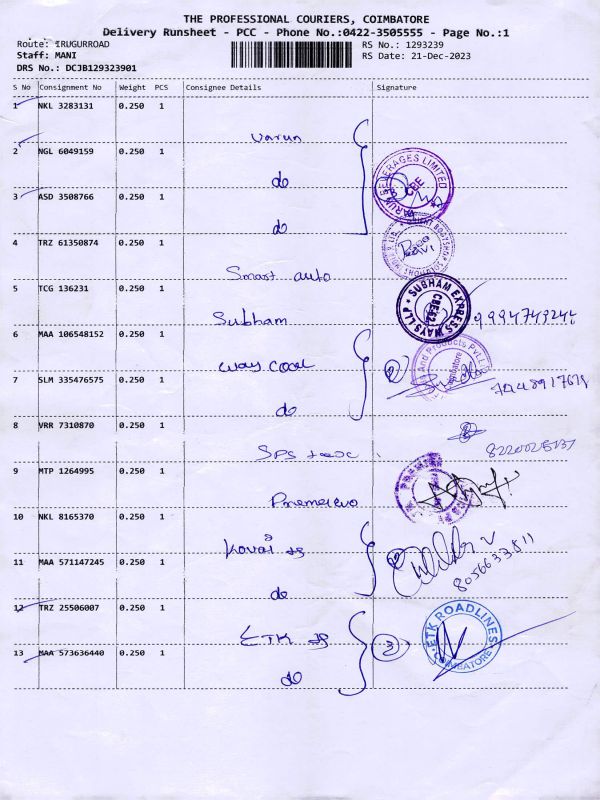 THE PROFESSIONAL COURIERS, COIMBATORE
Delivery Runsheet - PCC - Phone No.:0422-3505555 - Page No.:1
Route: IRUGURROAD
RS No.: 1293239
Staff: MANI
RS Date: 21-Dec-2023
DRS No.: DCJB129323901
S No Consignment No Weight PCS Consignee Details Signature
1 NKL 3283131 0.250 1
Varun
2 NGL 6049159 0.250 1
do
BEVERAGES LIMITED
CBE
3 ASD 3508766 0.250 1
do
4 TRZ 61350874 0.250 1
Smart auto
5 TCG 136231 0.250 1
Subham
SUBHAM EXPRESS WAYS LLP
9994749244
6 MAA 106548152 0.250 1
way cool
And Products Pvt.
Coimbatore
2
7 SLM 335476575 0.250 1
do
8 VRR 7310870 0.250 1
SPS
9 MTP 1264995 0.250 1
10 NKL 8165370 0.250 1
11 MAA 571147245 0.250 1
8056633811
do
12 TRZ 25506007 0.250 1
ETK
ETK ROADLINES
COIMBATORE
3
13 MAA 573636440 0.250 1
do